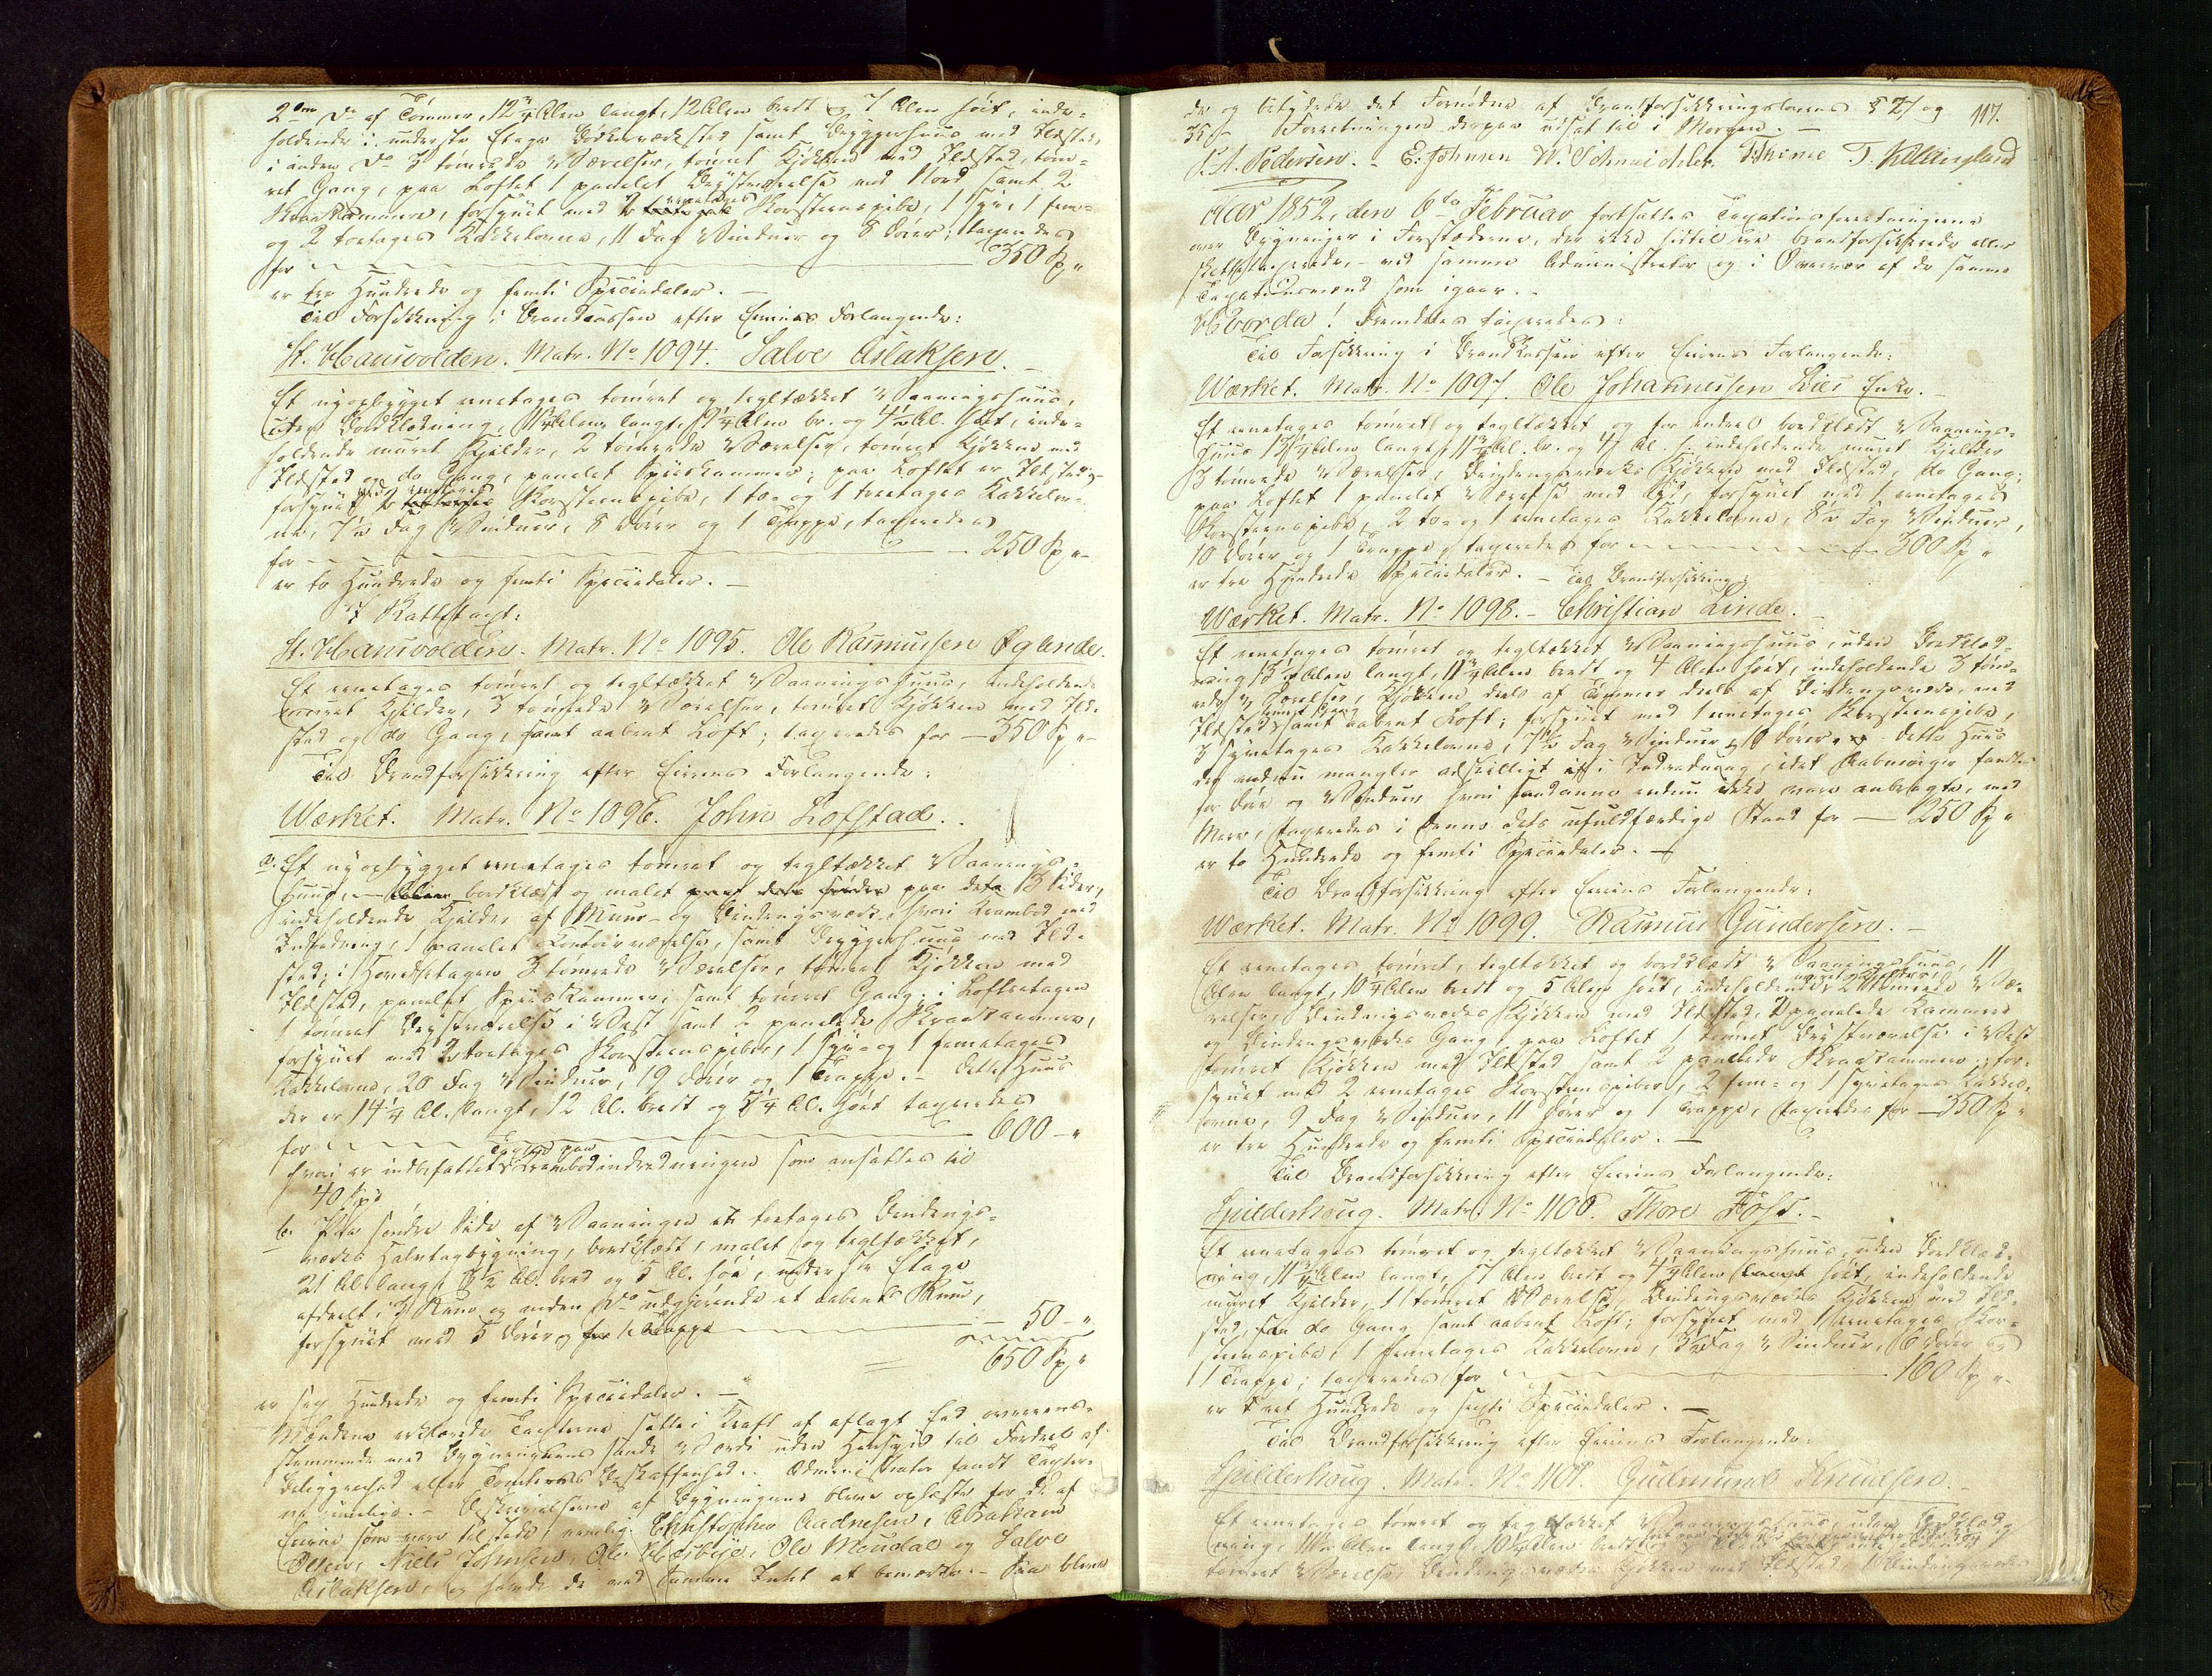 2den Do af Tømmer, 12 3/4 Alen langt, 12 Alen bredt og 7 Alen høit, inde-
holdende i underste Etage Bødkerværksted samt Bryggerhuus med Ildsted,
i anden Do 3 tømrede Værelser, tømret Kjøkken med Ildsted, tøm-
ret Gang, paa Loftet 1 panelet Qvistværelse mod Nord samt 2
Skraakammere, forsynet med 2 eenetages Skorsteenspibe, 1 fem-
og 2 toetages Kakkelovne, 11 Fag Vinduer og 8 Dører; taxeredes
for 350 Sp "
er tre Hundrede og femti Speciedaler. —
Til Forsikkring i Brandcassen efter Eierens Forlangende:
St. Hansvolden. Matr. No 1094. Salve Aslaksen.
Et nyopbygget eenetages tømret og tegltækket Vaaningshuus,
uden Bordklædning, Alen langt, 9 1/4 Alen br. og 4 1/2 Al. høit, inde-
holdende muret Kjelder, 2 tømrede Værelser, tømret Kjøkken med
Ildsted og do Gang, panelet Spiiskammer; paa Loftet er Ildsted,
forsynet med eenetages Skorsteenspibe, 1 to- og 1 treetages Kakkelov-
ne, 7 1/2 Fag Vinduer, 8 Dører og 1 Trappe, taxeredes
for 250 Sp "
er to Hundrede og femti Speciedaler. —
I Kattskat:
St. Hansvolden. Matr. No 1095. Ole Rasmussen Øglende.
Et eenetages tømret og tegltækket Vaaningshuus, indeholdende
muret Kjelder, 3 tømrede Værelser, tømret Kjøkken med Ild-
sted og do Gang, samt aabent Loft; taxeredes for — 350 Sp "
Til Brandforsikkring efter Eierens Forlangende:
Værket. Matr. No 1096. John Lofstad.
a. Et nyopbygget eenetages tømret og tegltækket Vaanings-
huus, bordklædt og malet paa dets 3 Sider,
indeholdende Kjelder af Muur- og Bindingsværk, hvori Krambod med
Indredning, 1 panelet Contoirværelse, samt Bryggerhuus med Ild-
sted; i Hovedetagen 3 tømrede Værelser, tømret Kjøkken med
Ildsted, panelet Spiiskammer, samt tømret Gang; i Loftsetagen
1 tømret Qvistværelse i Vest samt 2 panelede Skraakammere,
forsynet med 2 toetages Skorsteenspiber, 1 syv- og 1 femetages
Kakkelovne, 20 Fag Vinduer, 19 Dører og 1 Trappe. — Dette Huus
der er 14 1/4 Al. langt, 12 Al. bredt og 5 1/4 Al. høit taxeredes
for 600 — "
hvori er indbefattet Taxten paa Krambodindredningen som ansattes til
40 Spd
b. Paa søndre Side af Vaaningen et toetages Bindings-
værks Halvtagbygning, bordklædt, malet og tegltækket,
21 Al. langt, 3 1/2 Al. bred og 5 Al. høi, underste Etage
afdeelt i 3 Rum og anden Do udgjørende et aabent Rum,
forsynet med 5 Dører og 1 Trappe — 50 — "
650 Sp "
er sex Hundrede og femti Speciedaler. —
Mændene erklærede Taxterne satte i Kraft af aflagt Eed overeens-
stemmende med Bygningernes sande Værdi uden Hensyn til Fordeel af
Beliggenhed eller Tomternes Beskaffenhed. Administrator fandt Taxter-
ne rimelige. — Beskrivelserne af Bygningerne bleve oplæste for de af
Eierne som vare tilstede, nemlig: Christopher Aadnesen, Abraham
Olsen, Niels Johnsen, Ole Olsen Ole Meudal og Salve
Aslaksen, og havde de mod samme Intet at bemærke. — Saa bleve
117.
de og betydede det Fornødne af Brandforsikkringslovens § 27 og
35. — Forretningen derpaa udsat til i Morgen. —
P. A. Pedersen. — E. Johnsen W. Schneider Thime T. Kellingland
Aar 1852, den 6te Februar fortsattes Taxationsforretningerne
over Bygninger i Forstæderne, der ikke hidtil ere brandforsikkrede eller
skattetaxerede, — ved samme Administrator og i Overvær af de samme
Taxationsmænd som igaar. —
Hvorda! Fremdeles taxeredes:
Til Forsikkring i Brandkassen efter Eierens Forlangende:
Værket. Matr. No 1097. Ole Johannessen Riis Enke.
Et eenetages tømret og tegltækket og for endeel bordklædt Vaanings-
huus 13 1/4 Alen langt, 11 3/4 Al. br. og 4 Al. h. indeholdende muret Kjelder
3 tømrede Værelser, Bindingsværks Kjøkken med Ildsted, do Gang;
paa Loftet 1 panelet Værelse mod Syd, forsynet med 1 eenetages
Skorsteenspibe, 2 to- og 1 eenetages Kakkelovne, 8 1/2 Fag Vinduer,
10 Dører og 1 Trappe, taxeredes for 300 Sp "
er tre Hundrede Speciedaler. — Til Brandforsikkring:
Værket. Matr. No 1098. — Christian Linde.
Et eenetages tømret og tegltækket Vaaningshuus, uden Bordklæd-
ning 13 Alen langt, 11 3/4 Alen bredt og 4 Alen høit, indeholdende 3 tøm-
rede Værelser, Kjøkken deels af Tømmer deels af Bindingsværk, med
Ildsted samt Gang samt aabent Loft; forsynet med 1 eenetages Skorsteenspibe,
3 syvetages Kakkelovne, 7 1/2 Fag Vinduer og 8 Dører. — Dette Huus
der endnu mangler adskilligt i Indredning, idet Aabninger fandtes
for Dør og Vinduer, hvori saadanne endnu ikke vare anbragte, med
Mere, taxeredes i denne dets ufuldfærdige Stand for — 250 Sp "
er to Hundrede og femti Speciedaler. —
Til Brandforsikkring efter Eierens Forlangende:
Værket. Matr. No 1099. Rasmus Gundersen. —
Et eenetages tømret, tegltækket og bordklædt Vaaningshuus, 11
Alen langt, 10 1/4 Alen bredt og 5 Alen høit, indeholdende muret Kjelder, 2 tømrede Væ-
relser, Bindingsværks Kjøkken med Ildsted, 2 panelede Kammere
og Bindingsværks Gang, paa Loftet 1 tømret Qvistværelse i Vest
tømret Kjøkken med Ildsted samt 2 panelede Skraakammere; for-
synet med 2 eenetages Skorsteenspiber, 2 fem- og 1 syvetages Kakkel-
ovne, 9 Fag Vinduer, 11 Dører og 1 Trappe, taxeredes for — 350 Sp "
er tre Hundrede og femti Speciedaler. —
Til Brandforsikkring efter Eierens Forlangende:
Spilderhoug. Matr. No 1100. Thore Fost. —
Et eenetages tømret og tegltækket Vaaningshuus, uden Bordklæd-
ning, 11 3/4 Alen langt, 7 Alen bredt og 4 1/4 Alen høit, indeholdende
muret Kjelder, 1 tømret Værelse, Bindingsværks Kjøkken med Ild-
sted, do Gang samt aabent Loft; forsynet med 1 eenetages Skor-
steenspibe, 1 femetages Kakkelovn, 3 1/2 Fag Vinduer, 6 Dører og
1 Trappe; taxeredes for 160 Sp "
er Eet Hundrede og sexti Speciedaler. —
Til Brandforsikkring efter Eierens Forlangende:
Spilderhoug. Matr. No 1101. Gudmund Knudsen. —
Et eenetages tømret og tegltækket Vaaningshuus, uden Bordklæd-
ning, 11 1/2 Alen langt, 10 1/4 Alen bredt
tømret Værelse, Bindingsværks Kjøkken med Ildsted, 1 Bindingsværks